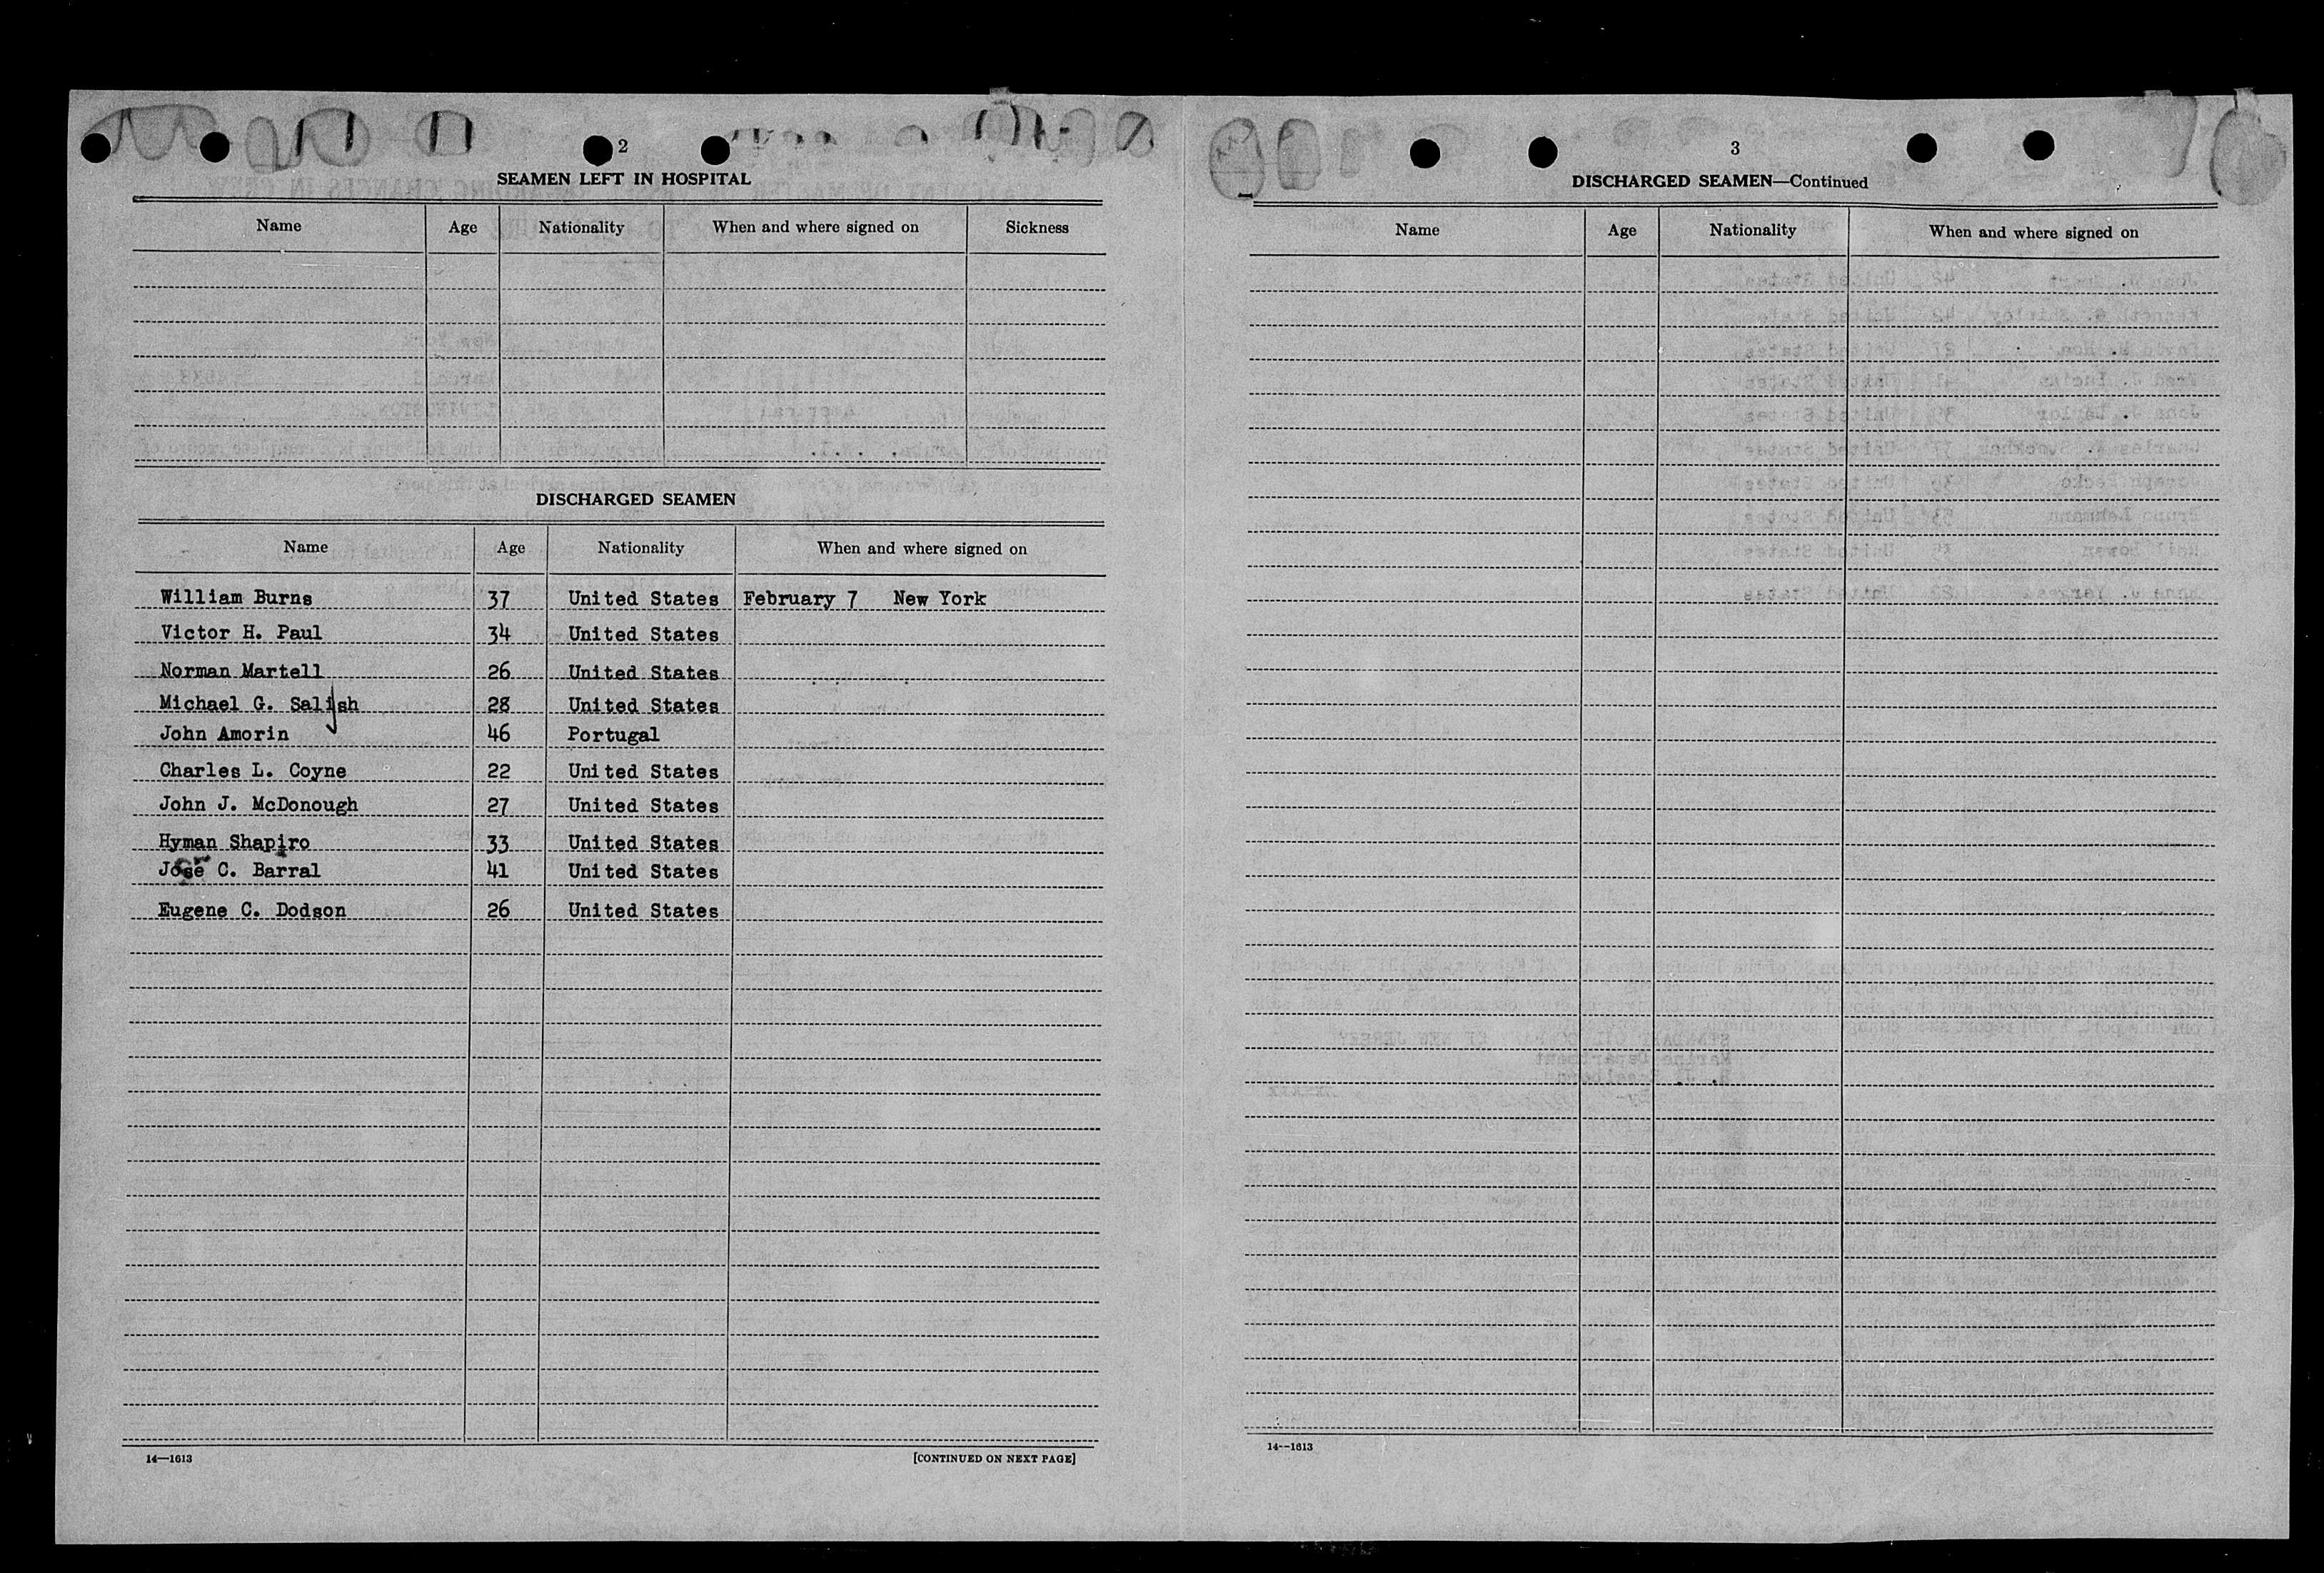 2
SEAMEN LEFT IN HOSPITAL
Name Age Nationality When and where signed on Sickness
DISCHARGED SEAMEN
Name Age Nationality When and where signed on
William Burns 37 United States February 7 New York
Victor H. Paul 34 United States
Norman Martell 26 United States
Michael G. Salish 28 United States
John Amorin 46 Portugal
Charles L. Coyne 22 United States
John J. McDonough 27 United States
Hyman Shapiro 33 United States
Jose C. Barral 41 United States
Eugene C. Dodson 26 United States
14—1613 [CONTINUED ON NEXT PAGE]
3
DISCHARGED SEAMEN—Continued
Name Age Nationality When and where signed on
14--1613